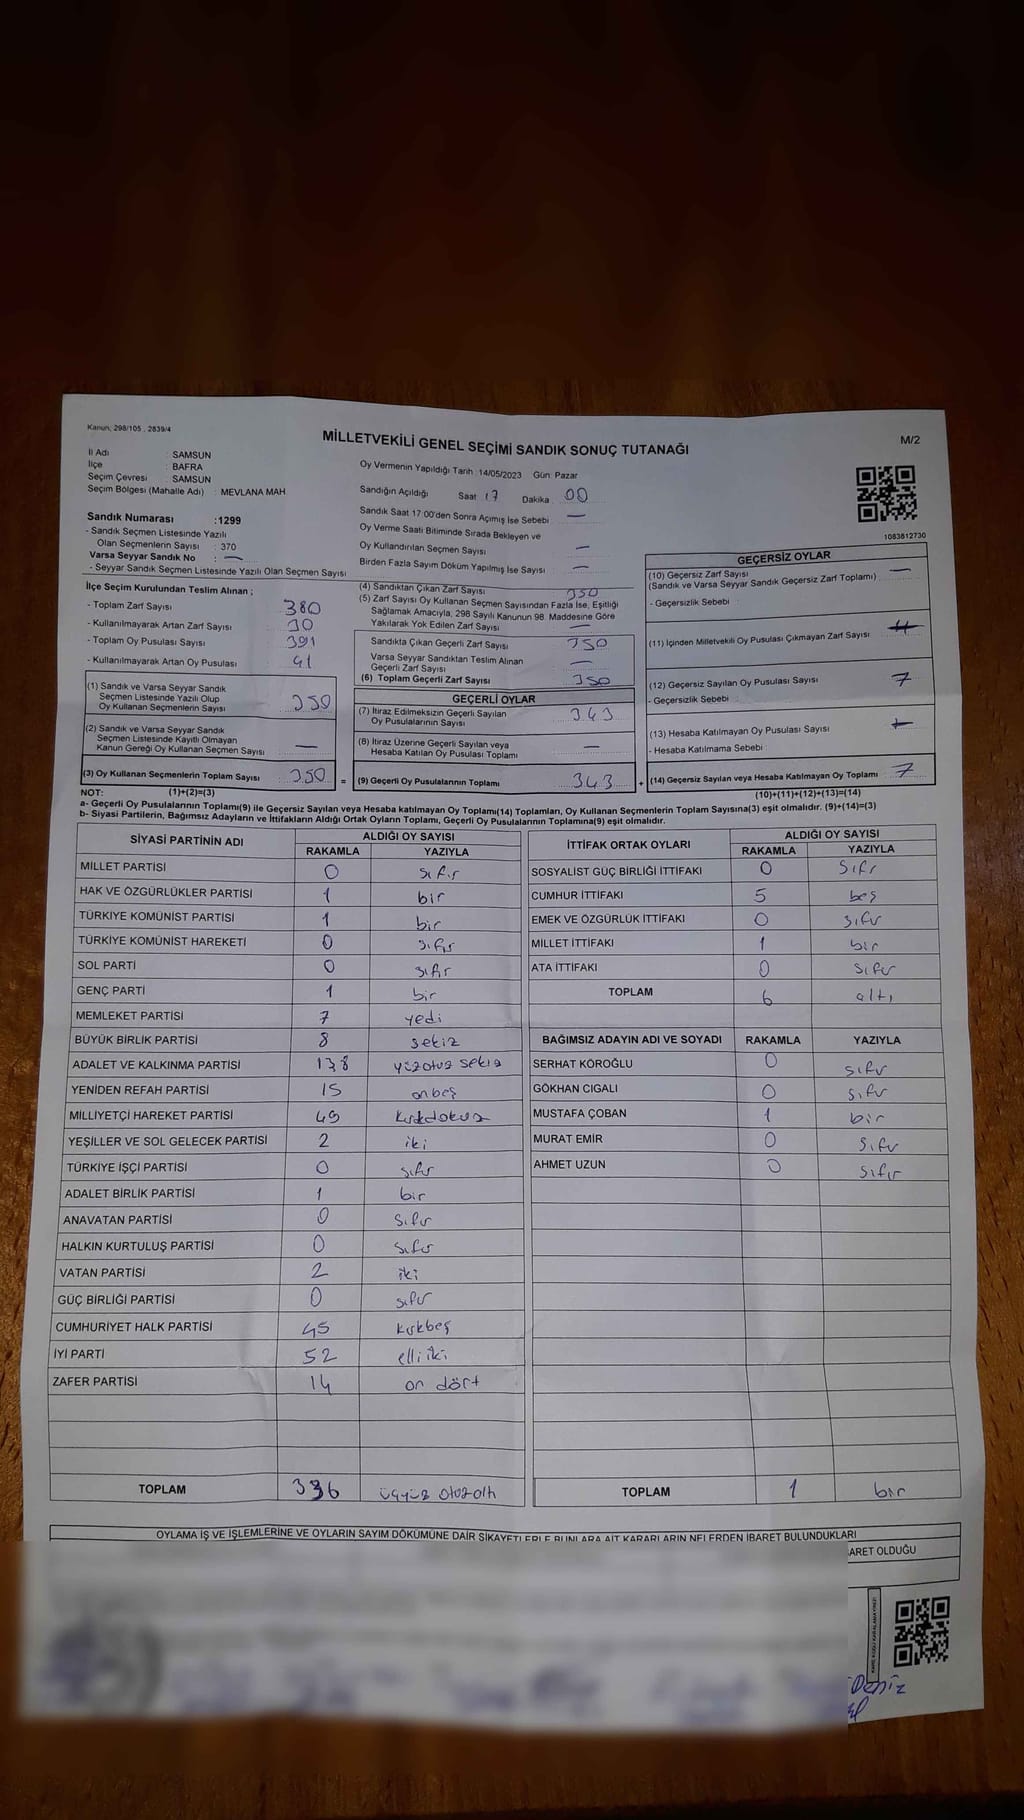 Kanun; 298/105 , 2839/4
MİLLETVEKİLİ GENEL SEÇİMİ SANDIK SONUÇ TUTANAĞI
M/2
İl Adı : SAMSUN
İlçe : BAFRA
Seçim Çevresi : SAMSUN
Seçim Bölgesi (Mahalle Adı) : MEVLANA MAH
Sandık Numarası :1299
- Sandık Seçmen Listesinde Yazılı
Olan Seçmenlerin Sayısı : 370
Varsa Seyyar Sandık No : —
- Seyyar Sandık Seçmen Listesinde Yazılı Olan Seçmen Sayısı
Oy Vermenin Yapıldığı Tarih :14/05/2023 Gün: Pazar
Sandığın Açıldığı Saat 17 Dakika 00
Sandık Saat 17:00'den Sonra Açımış İse Sebebi —
Oy Verme Saati Bitiminde Sırada Bekleyen ve
Oy Kullandırılan Seçmen Sayısı —
Birden Fazla Sayım Döküm Yapılmış İse Sayısı —
1083812730
İlçe Seçim Kurulundan Teslim Alınan ;
- Toplam Zarf Sayısı 380
- Kullanılmayarak Artan Zarf Sayısı 30
- Toplam Oy Pusulası Sayısı 391
- Kullanılmayarak Artan Oy Pusulası 41
(1) Sandık ve Varsa Seyyar Sandık
Seçmen Listesinde Yazılı Olup
Oy Kullanan Seçmenlerin Sayısı 350
(2) Sandık ve Varsa Seyyar Sandık
Seçmen Listesinde Kayıtlı Olmayan
Kanun Gereği Oy Kullanan Seçmen Sayısı —
(3) Oy Kullanan Seçmenlerin Toplam Sayısı 350 =
(4) Sandıktan Çıkan Zarf Sayısı 350
(5) Zarf Sayısı Oy Kullanan Seçmen Sayısından Fazla İse, Eşitliği
Sağlamak Amacıyla, 298 Sayılı Kanunun 98. Maddesine Göre
Yakılarak Yok Edilen Zarf Sayısı —
Sandıkta Çıkan Geçerli Zarf Sayısı 350
Varsa Seyyar Sandıktan Teslim Alınan
Geçerli Zarf Sayısı —
(6) Toplam Geçerli Zarf Sayısı 350
GEÇERLİ OYLAR
(7) İtiraz Edilmeksizin Geçerli Sayılan
Oy Pusulalarının Sayısı 343
(8) İtiraz Üzerine Geçerli Sayılan veya
Hesaba Katılan Oy Pusulası Toplamı —
(9) Geçerli Oy Pusulalarının Toplamı 343 +
GEÇERSİZ OYLAR
(10) Geçersiz Zarf Sayısı —
(Sandık ve Varsa Seyyar Sandık Geçersiz Zarf Toplamı)
- Geçersizlik Sebebi :
(11) İçinden Milletvekili Oy Pusulası Çıkmayan Zarf Sayısı
(12) Geçersiz Sayılan Oy Pusulası Sayısı 7
- Geçersizlik Sebebi :
(13) Hesaba Katılmayan Oy Pusulası Sayısı
- Hesaba Katılmama Sebebi :
(14) Geçersiz Sayılan veya Hesaba Katılmayan Oy Toplamı 7
NOT: (1)+(2)=(3)
(10)+(11)+(12)+(13)=(14)
a- Geçerli Oy Pusulalarının Toplamı(9) ile Geçersiz Sayılan veya Hesaba katılmayan Oy Toplamı(14) Toplamları, Oy Kullanan Seçmenlerin Toplam Sayısına(3) eşit olmalıdır. (9)+(14)=(3)
b- Siyasi Partilerin, Bağımsız Adayların ve İttifakların Aldığı Ortak Oyların Toplamı, Geçerli Oy Pusulalarının Toplamına(9) eşit olmalıdır.
SİYASİ PARTİNİN ADI ALDIĞI OY SAYISI
RAKAMLA YAZIYLA
MİLLET PARTİSİ 0 sıfır
HAK VE ÖZGÜRLÜKLER PARTİSİ 1 bir
TÜRKİYE KOMÜNİST PARTİSİ 1 bir
TÜRKİYE KOMÜNİST HAREKETİ 0 sıfır
SOL PARTİ 0 sıfır
GENÇ PARTİ 1 bir
MEMLEKET PARTİSİ 7 yedi
BÜYÜK BİRLİK PARTİSİ 8 sekiz
ADALET VE KALKINMA PARTİSİ 138 yüzotuz sekiz
YENİDEN REFAH PARTİSİ 15 onbeş
MİLLİYETÇİ HAREKET PARTİSİ 49 kırkdokuz
YEŞİLLER VE SOL GELECEK PARTİSİ 2 iki
TÜRKİYE İŞÇİ PARTİSİ 0 sıfır
ADALET BİRLİK PARTİSİ 1 bir
ANAVATAN PARTİSİ 0 sıfır
HALKIN KURTULUŞ PARTİSİ 0 sıfır
VATAN PARTİSİ 2 iki
GÜÇ BİRLİĞİ PARTİSİ 0 sıfır
CUMHURİYET HALK PARTİSİ 45 kırkbeş
İYİ PARTİ 52 elliiki
ZAFER PARTİSİ 14 on dört
TOPLAM 336 üçyüz otuzaltı
İTTİFAK ORTAK OYLARI ALDIĞI OY SAYISI
RAKAMLA YAZIYLA
SOSYALİST GÜÇ BİRLİĞİ İTTİFAKI 0 sıfır
CUMHUR İTTİFAKI 5 beş
EMEK VE ÖZGÜRLÜK İTTİFAKI 0 sıfır
MİLLET İTTİFAKI 1 bir
ATA İTTİFAKI 0 sıfır
TOPLAM 6 altı
BAĞIMSIZ ADAYIN ADI VE SOYADI RAKAMLA YAZIYLA
SERHAT KÖROĞLU 0 sıfır
GÖKHAN CIGALI 0 sıfır
MUSTAFA ÇOBAN 1 bir
MURAT EMİR 0 sıfır
AHMET UZUN 0 sıfır
TOPLAM 1 bir
OYLAMA İŞ VE İŞLEMLERİNE VE OYLARIN SAYIM DÖKÜMÜNE DAİR ŞİKAYETLERLE BUNLARA AİT KARARLARIN NELERDEN İBARET BULUNDUKLARI
ARET OLDUĞU
Deniz